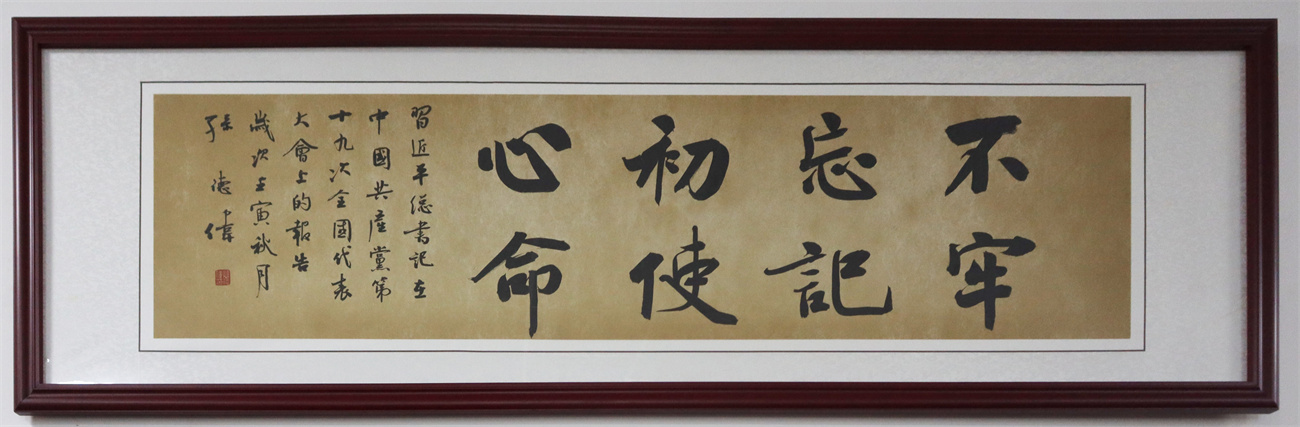 不忘初心
牢記使命
習近平總書記在
中國共產黨第
十九次全國代表
大會上的報告
歲次壬寅秋月
孫德偉